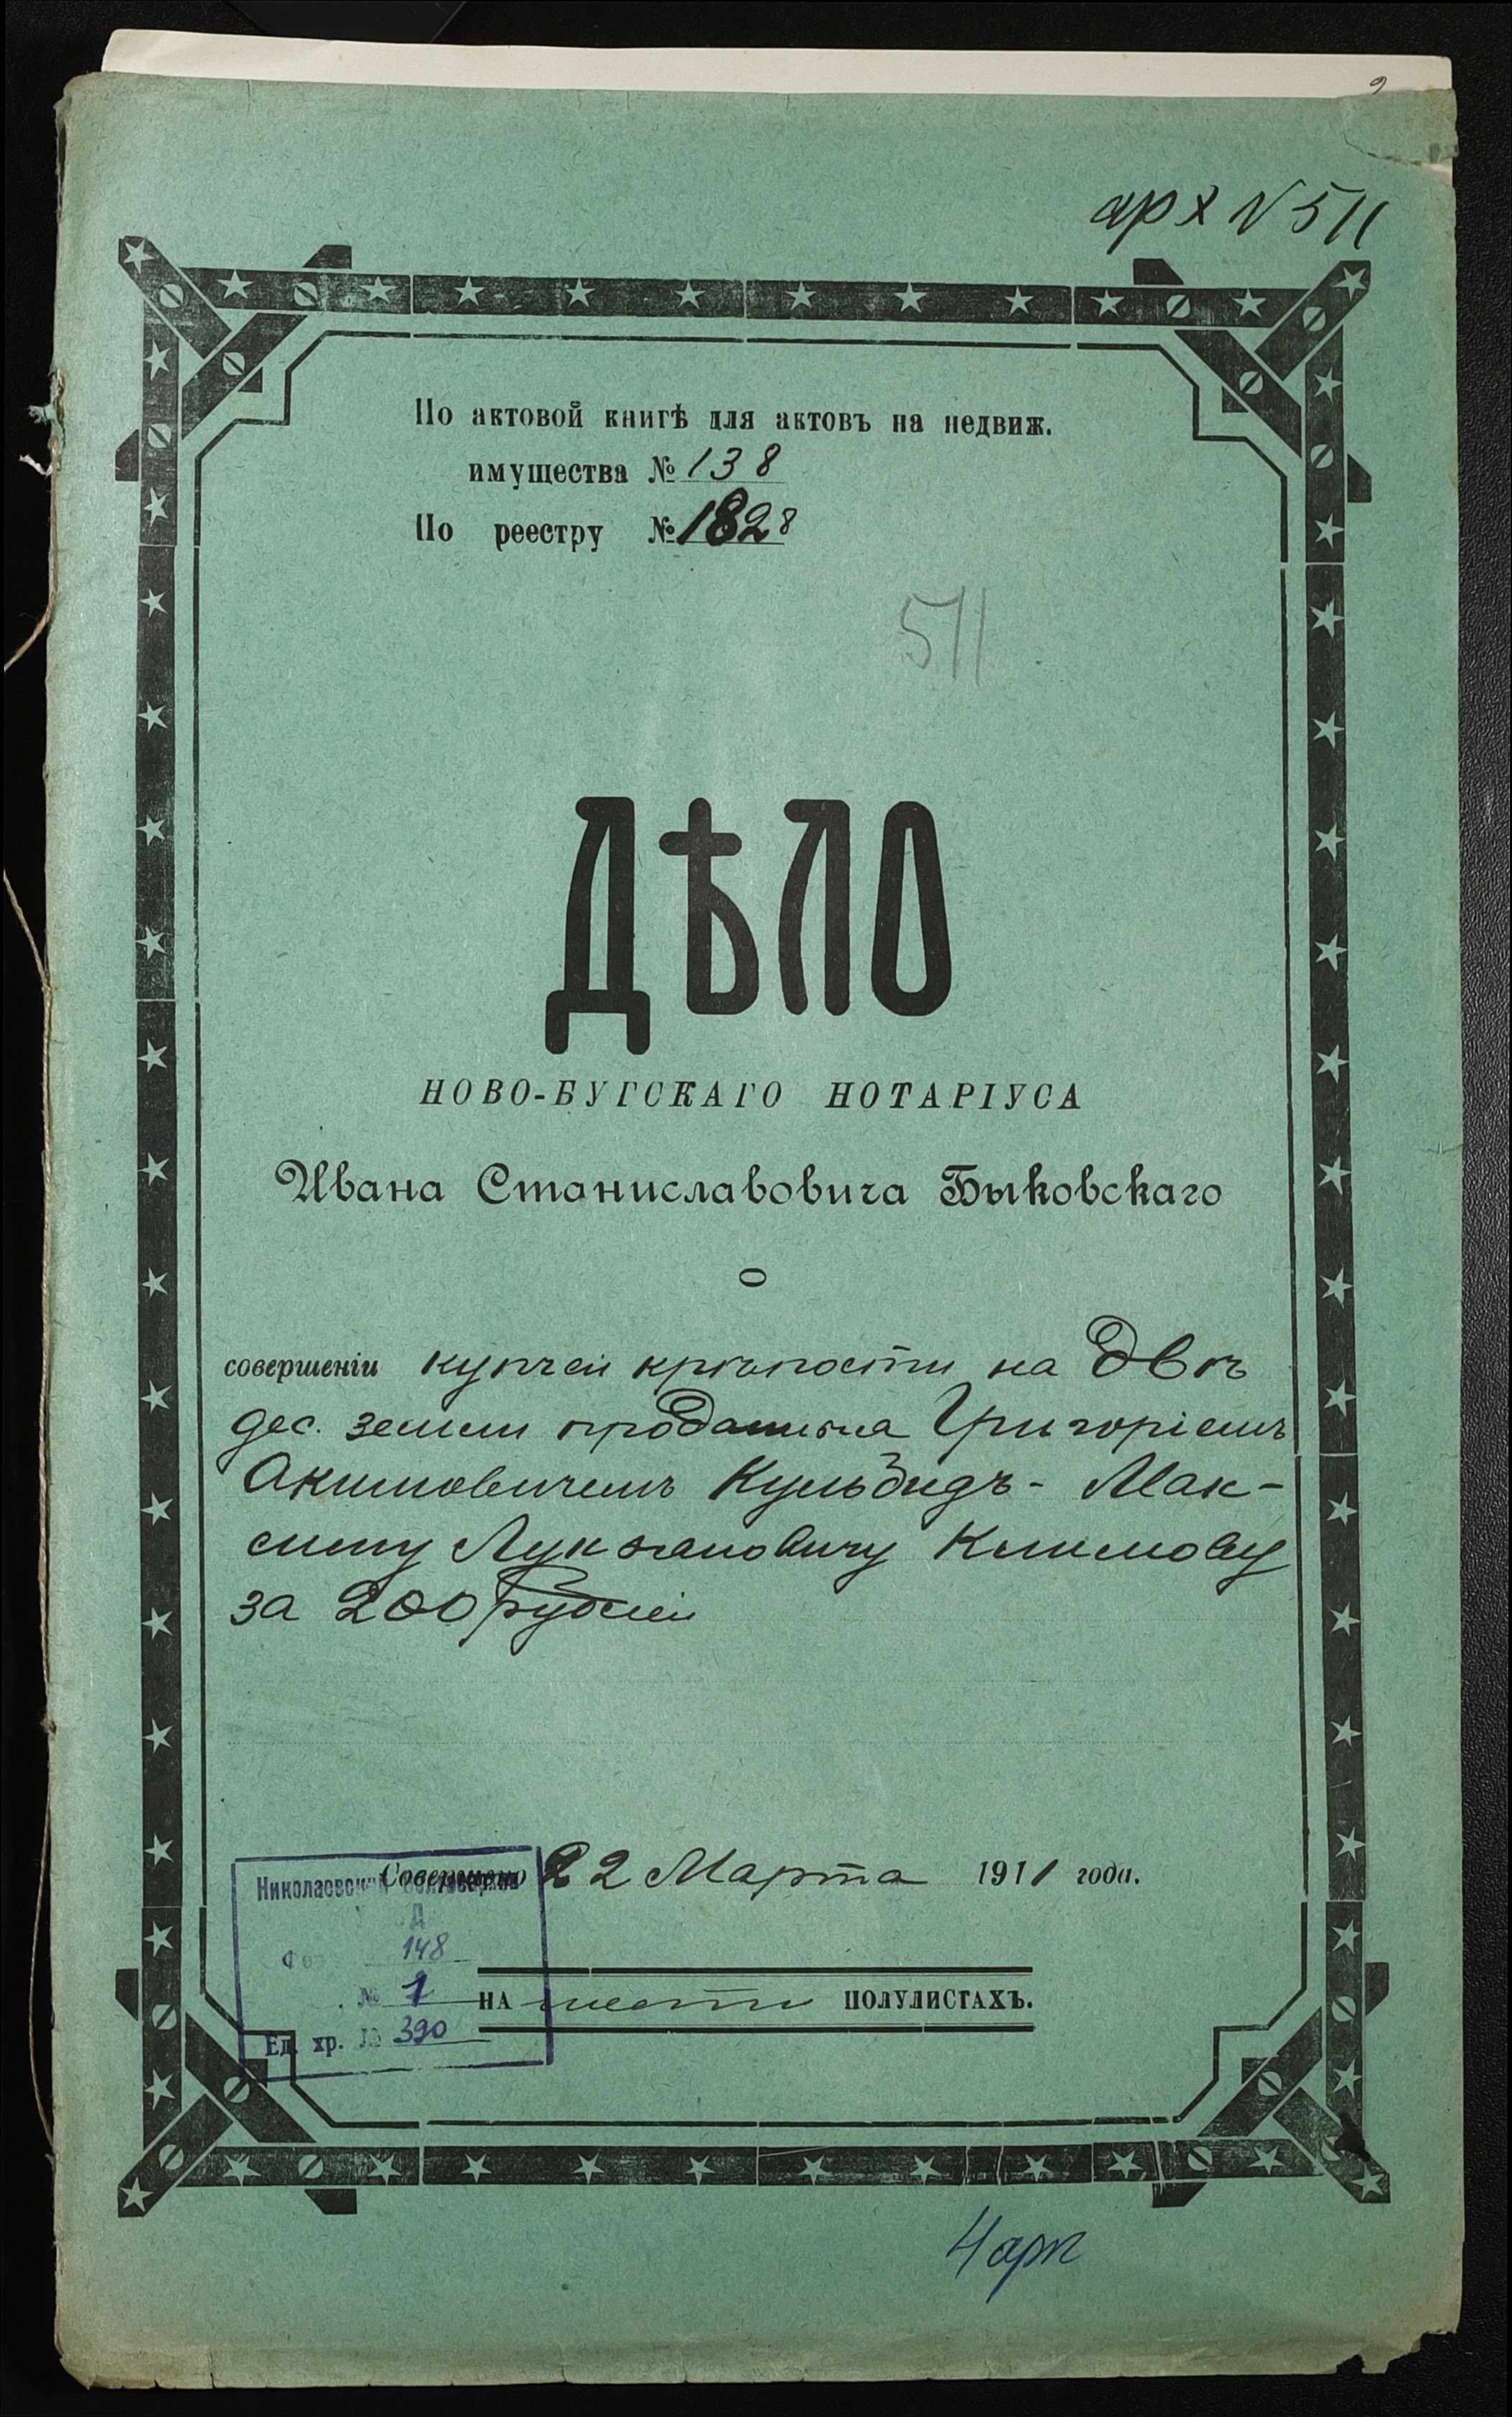 арх N 511
По актовой книгѣ для актовъ на недвиж.
имущества № 138
По реестру № 1828
511
ДѢЛО
НОВО-БУГСКАГО НОТАРІУСА
Ивана Станиславовича Быковскаго
О
совершеніи купчей крѣпости на двѣ
дес. земли проданныя Григоріемъ
Акимовичемъ Кульбидъ - Мак-
симу Лукьяновичу Климову
за 200 рублей
Совершено 22 Марта 1911 года.
Николаевский
148
№ 1
НА шести ПОЛУЛИСТАХЪ.
Ед. хр. № 390
4 арк